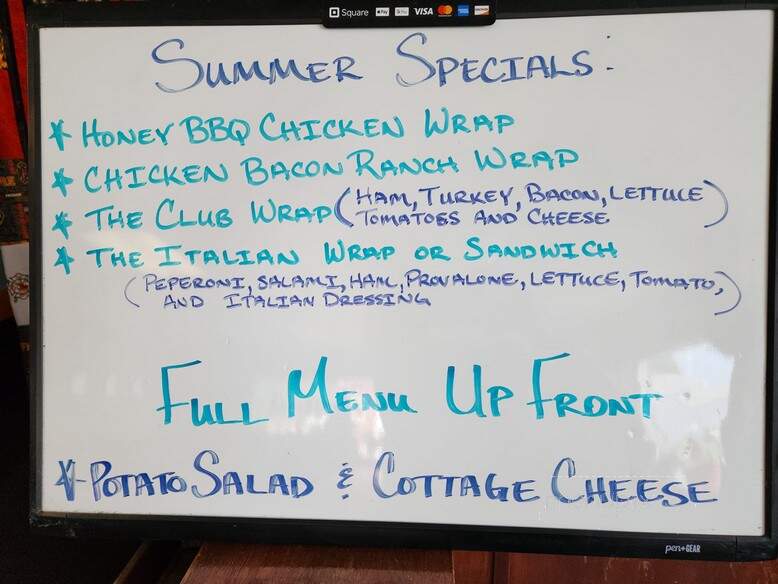 Square Pay G Pay VISA
SUMMER SPECIALS:
* HONEY BBQ CHICKEN WRAP
* CHICKEN BACON RANCH WRAP
* THE CLUB WRAP (HAM, TURKEY, BACON, LETTUCE
TOMATOES AND CHEESE)
* THE ITALIAN WRAP OR SANDWICH
(PEPERONI, SALAMI, HAM, PROVALONE, LETTUCE, TOMATO,
AND ITALIAN DRESSING)
FULL MENU UP FRONT
*-POTATO SALAD & COTTAGE CHEESE
pen+GEAR